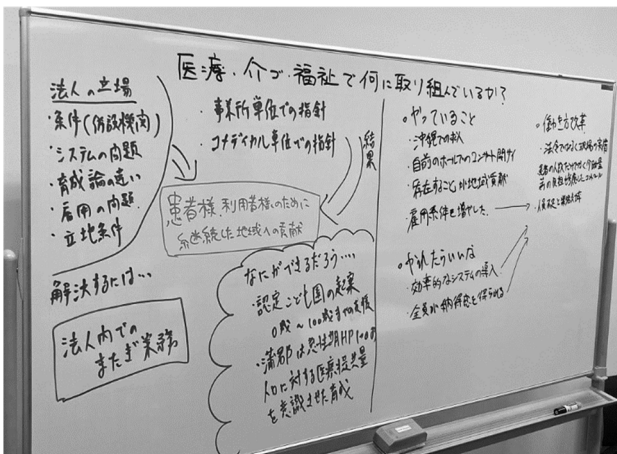 医療・介ゴ・福祉で何に取り組んでいるか?
法人の立場
・条件(併設機関)
・システムの問題
・育成論の違い
・雇用の問題
・立地条件
解決するには…
法人内での
またぎ業務
・事業所単位での指針
・コメディカル単位での指針
結果
患者様、利用者様のために
継続した地域への貢献
なにができるだろう….
・認定こども園の起案
0歳〜100歳までの支援
・蒲郡は急性期HP1つ
人口に対する医療提供量
を意識させた育成
○やっていること
・沖縄での求人
・自前のホールでのコンサート開サイ
・存在することが地域貢献
・雇用条件を増やした
○やれたらいいな
・効率的なシステムの導入
・全員が納得感を得られる
○働き方改革